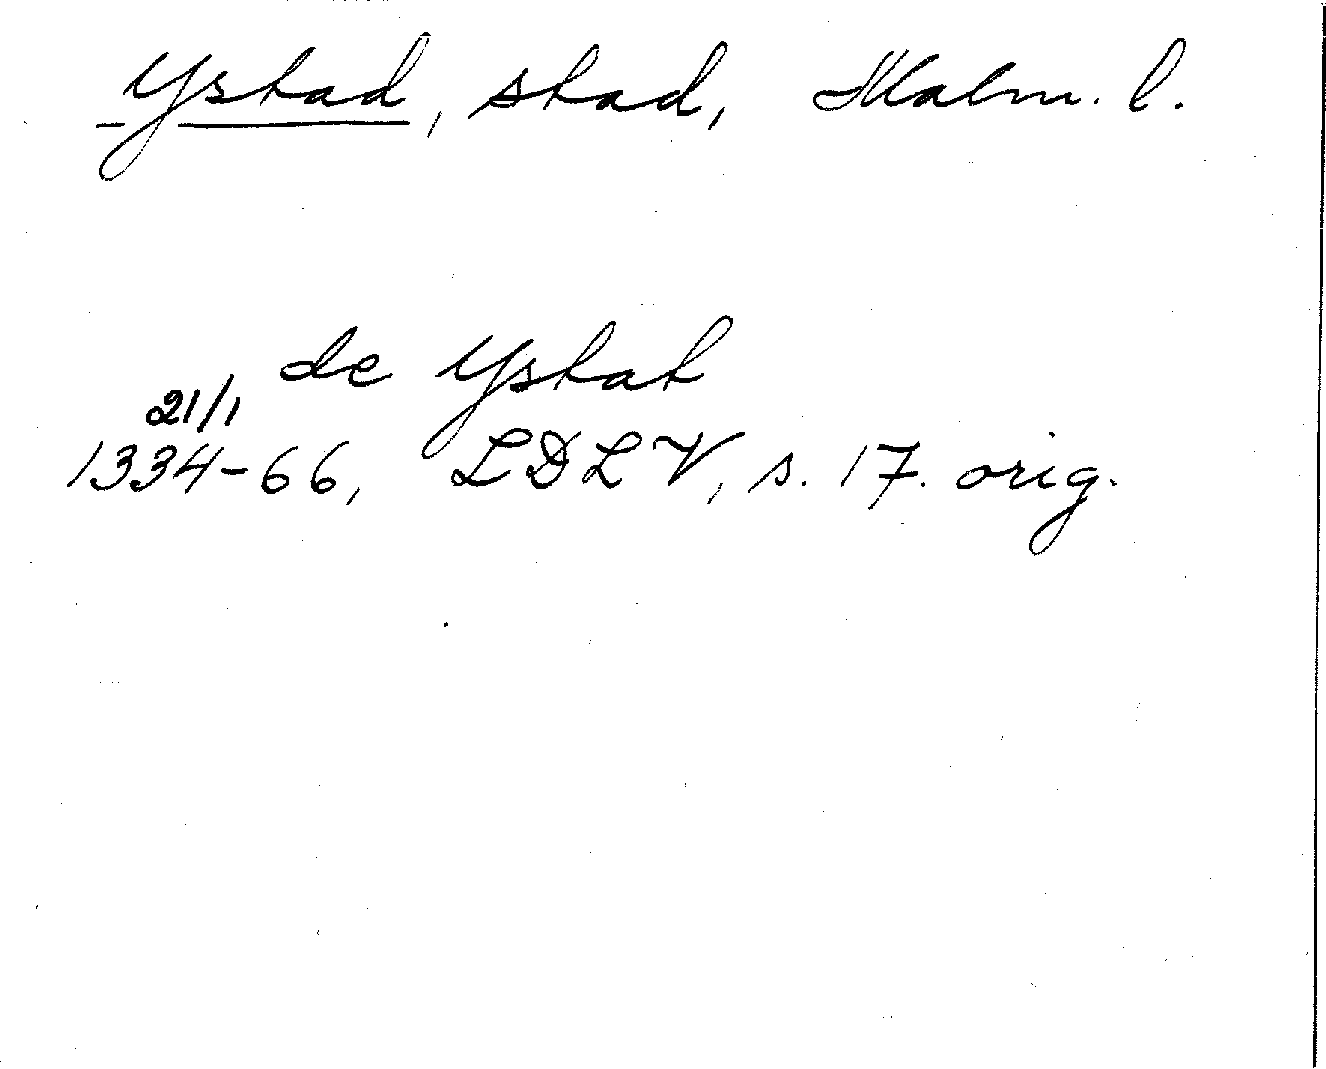 Ystad, stad, Malm. l.
de Ystat
21/1
1334-66, LDLV, s. 17. orig.